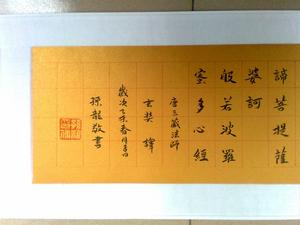 諦菩提薩
婆訶
般若波羅
蜜多心經
唐三藏法師
玄奘譯
歲次乙未春月吉日
孫龍敬書